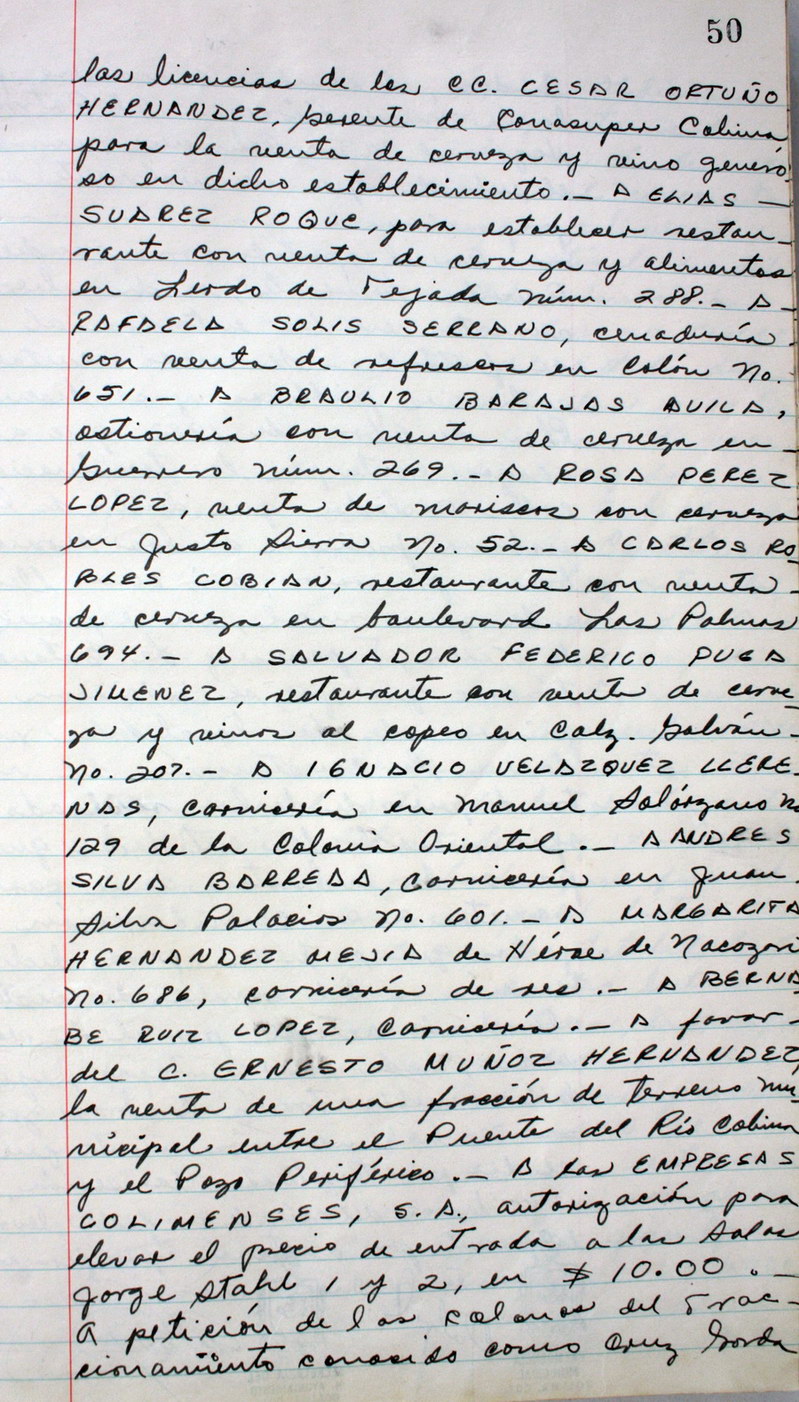 50
las licencias de los CC. CESAR ORTUÑO
HERNANDEZ, Gerente de Conasuper Colima
para la venta de cerveza y vino genero
so en dicho establecimiento.- A ELIAS -
SUAREZ ROQUE, para establecer restau-
rante con venta de cerveza y alimentos
en Lerdo de Tejada núm. 288.- A -
RAFAELA SOLIS SERRANO, cenaduría -
con venta de refrescos en Colón No.
651.- A BRAULIO BARAJAS AVILA,
ostionería con venta de cerveza en -
Guerrero núm. 269.- A ROSA PEREZ
LOPEZ, venta de mariscos con cerveza
en Justo Sierra No. 52.- A CARLOS RO-
BLES COBIAN, restaurante con venta -
de cerveza en boulevard Las Palmas
694.- A SALVADOR FEDERICO PUGA
JIMENEZ, restaurante con venta de cerve-
za y vinos al copeo en Calz. Galván -
No. 207.- A IGNACIO VELAZQUEZ LLERE-
NAS, carnicería en Manuel Solórzano No
129 de la Colonia Oriental.- A ANDRES
SILVA BARREDA, carnicería en Juan
Silva Palacios No. 601.- A MARGARITA
HERNANDEZ MEJIA de Héroe de Nacozari
No. 686, carnicería de res.- A BERNA
BE RUIZ LOPEZ, Carnicería.- A favor -
del C. ERNESTO MUÑOZ HERNANDEZ,
la venta de una fracción de terreno mu-
nicipal entre el Puente del Río Colima
y el Pozo Periférico.- A las EMPRESAS
COLIMENSES, S.A., autorización para
elevar el precio de entrada a las Salas
Jorge Stahl 1 y 2, en $10.00.-
A petición de los colonos del Frac-
cionamiento conocido como Cruz Gorda